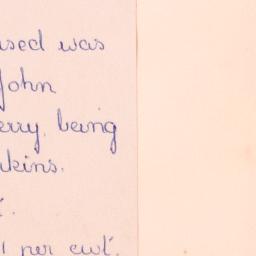 used was
John
erry, being
kins.
1 per cwt.